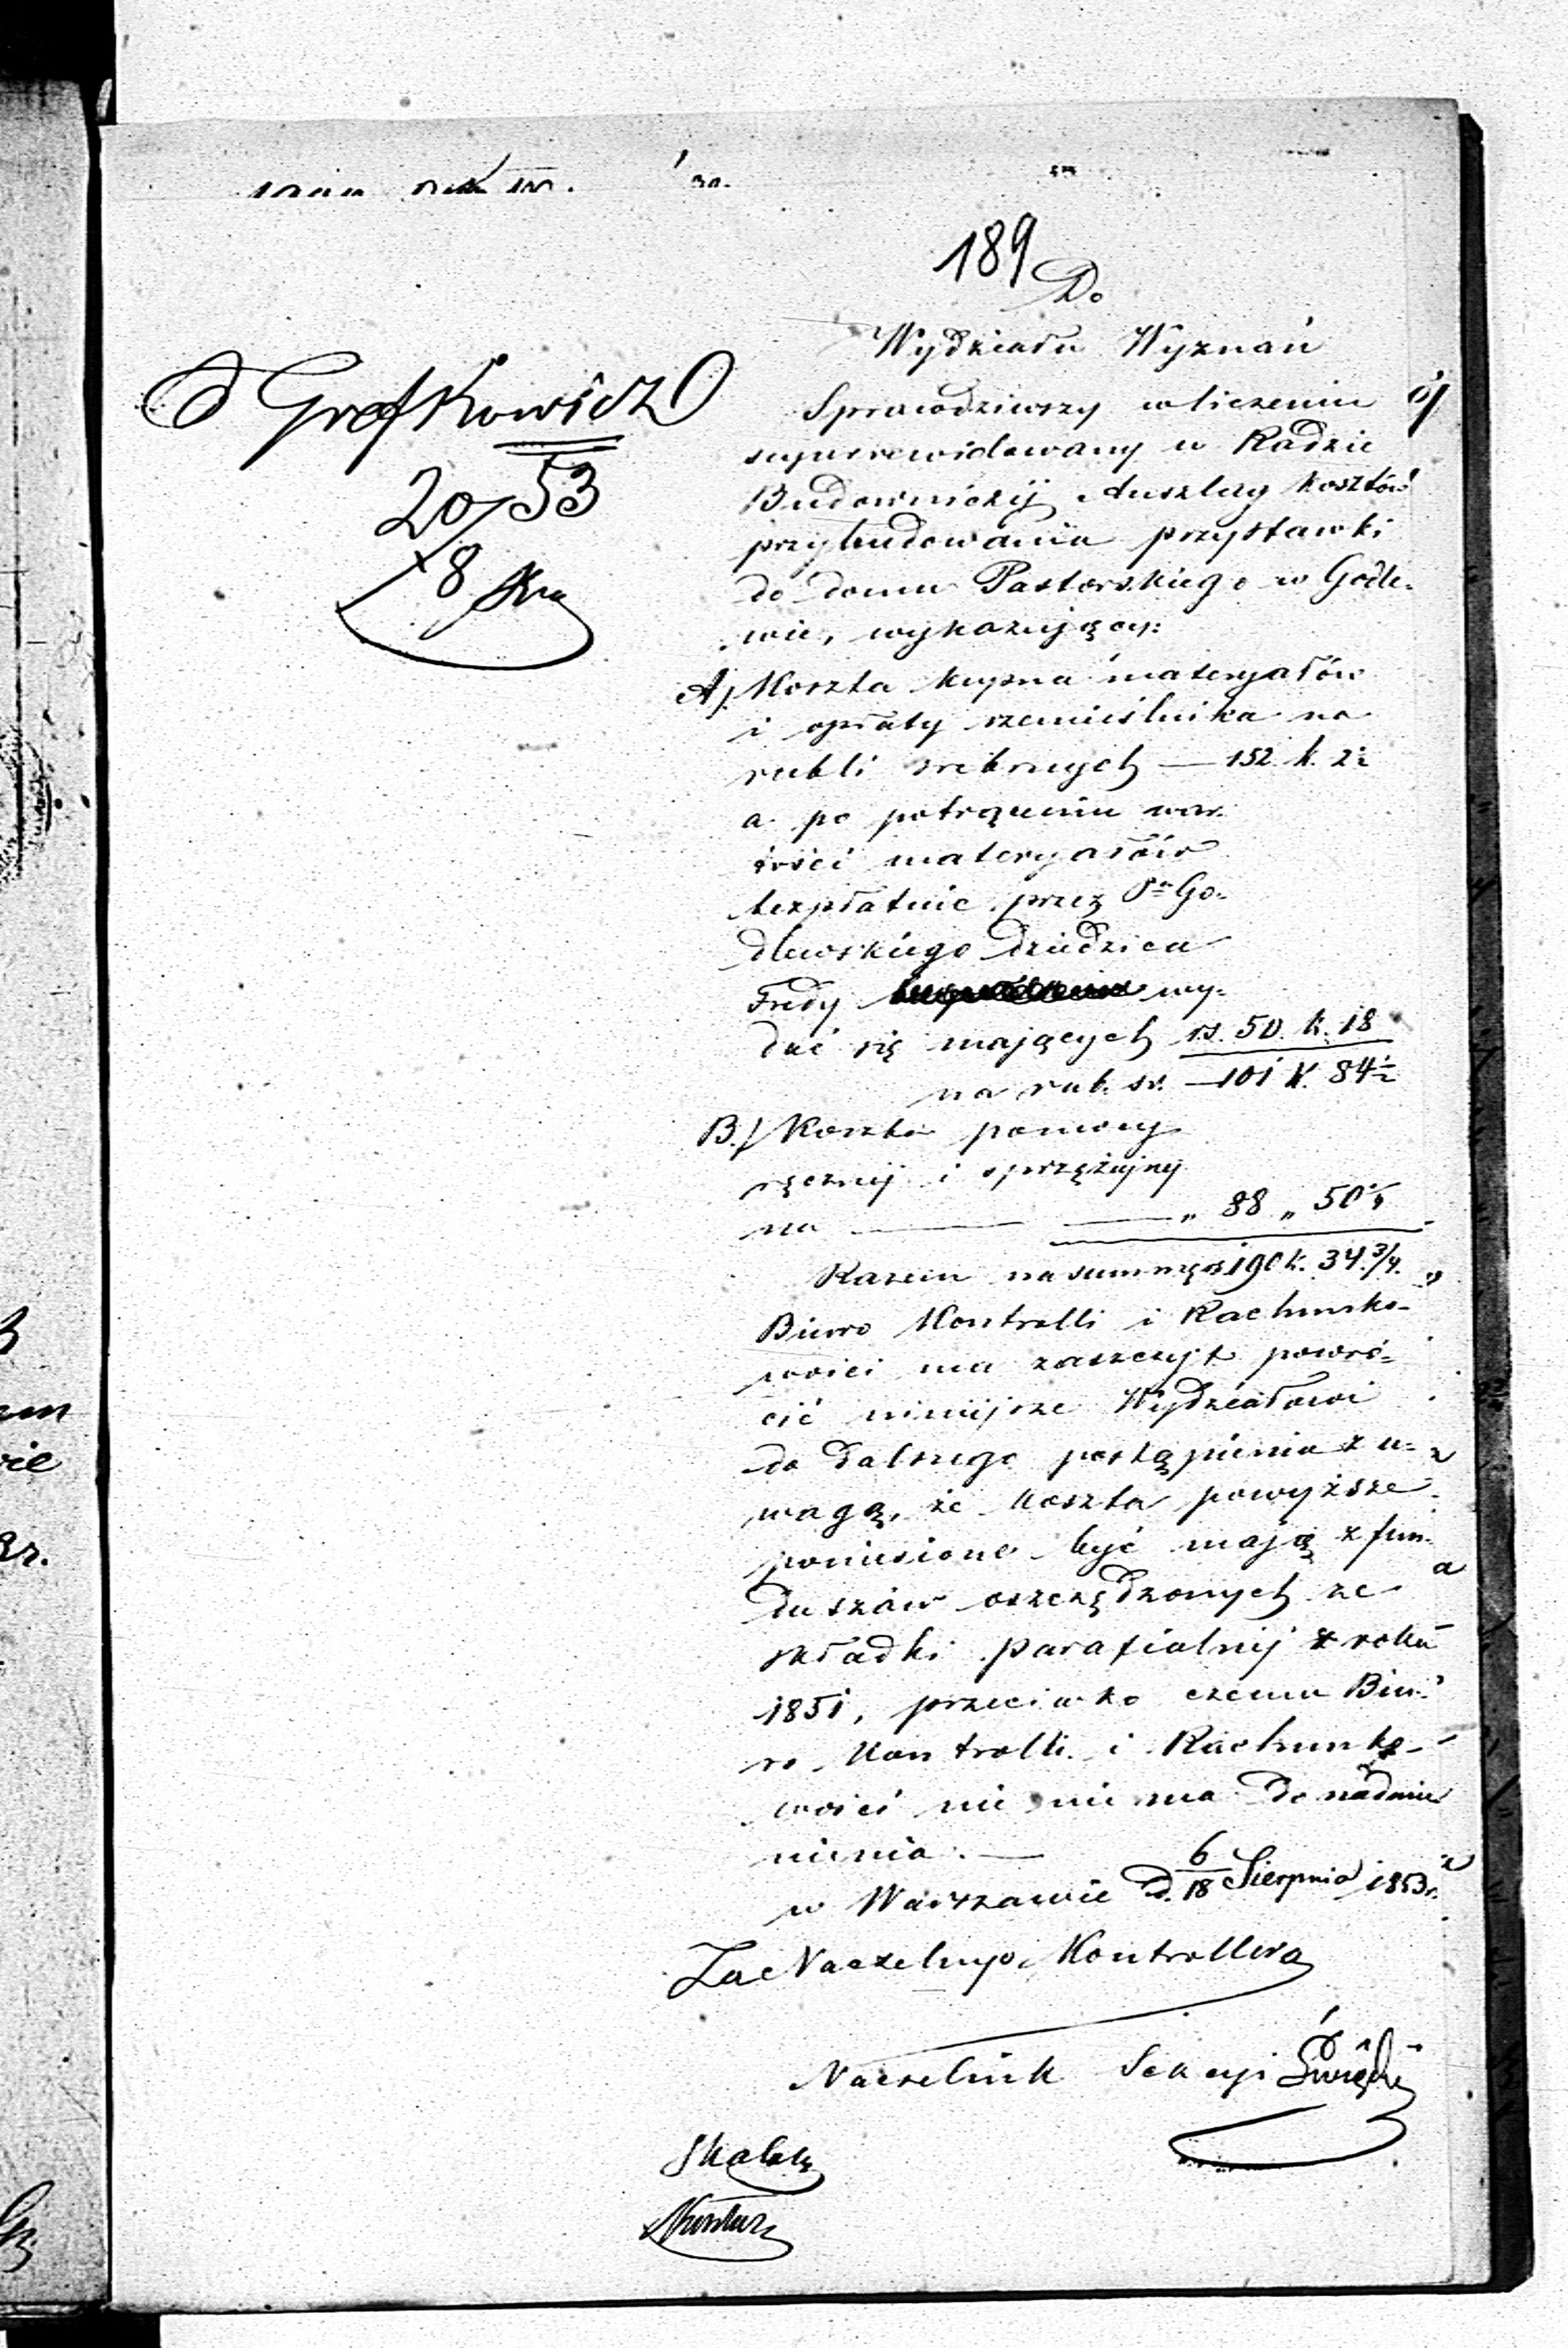 189
Do
Wydziału Wyznań
Sprawdziwszy w liczeniu
superrewidowany w Radzie
Budowniczéj Anszlag kosztów
przybudowania przystawki
do domu Pastorskiego w Godle-
wie, wykazujący:
A/. Koszta kupna materyałów
i opłaty rzemieślnika na
rubli srebrnych — 152. k. 2½
a po potrąceniu war-
tości materyałów
bezpłatnie przez Pa Go-
dlewskiego dziedzica
Fredy wy-
dać się mających rs. 50. k. 18
na rub. sr. — 101 k. 84½
B./ Koszta pomocy
ręcznéj i sprzężajnéj
na — — „ 88 „ 50¼
Razem na summę rs. 190 k. 34.¾.
Biuro Kontrolli i Rachunko-
wości ma zaszczyt powró-
cić niniejsze Wydziałowi
do dalszego postąpienia z u-
wagą, że koszta powyższe
poniesione być mają z fun-
duszów oszczędzonych ze
składki parafialnéj z roku
1851, przeciwko czemu Biu-
ro Kontrolli i Rachunko-
wości nic nie ma do nadmie
nienia. —
w Warszawie d. 6/18 Sierpnia 1853 r.
Za Naczelnego Kontrollera
Naczelnik Sekcyi Święcki
Grafkowicz
20/8 53